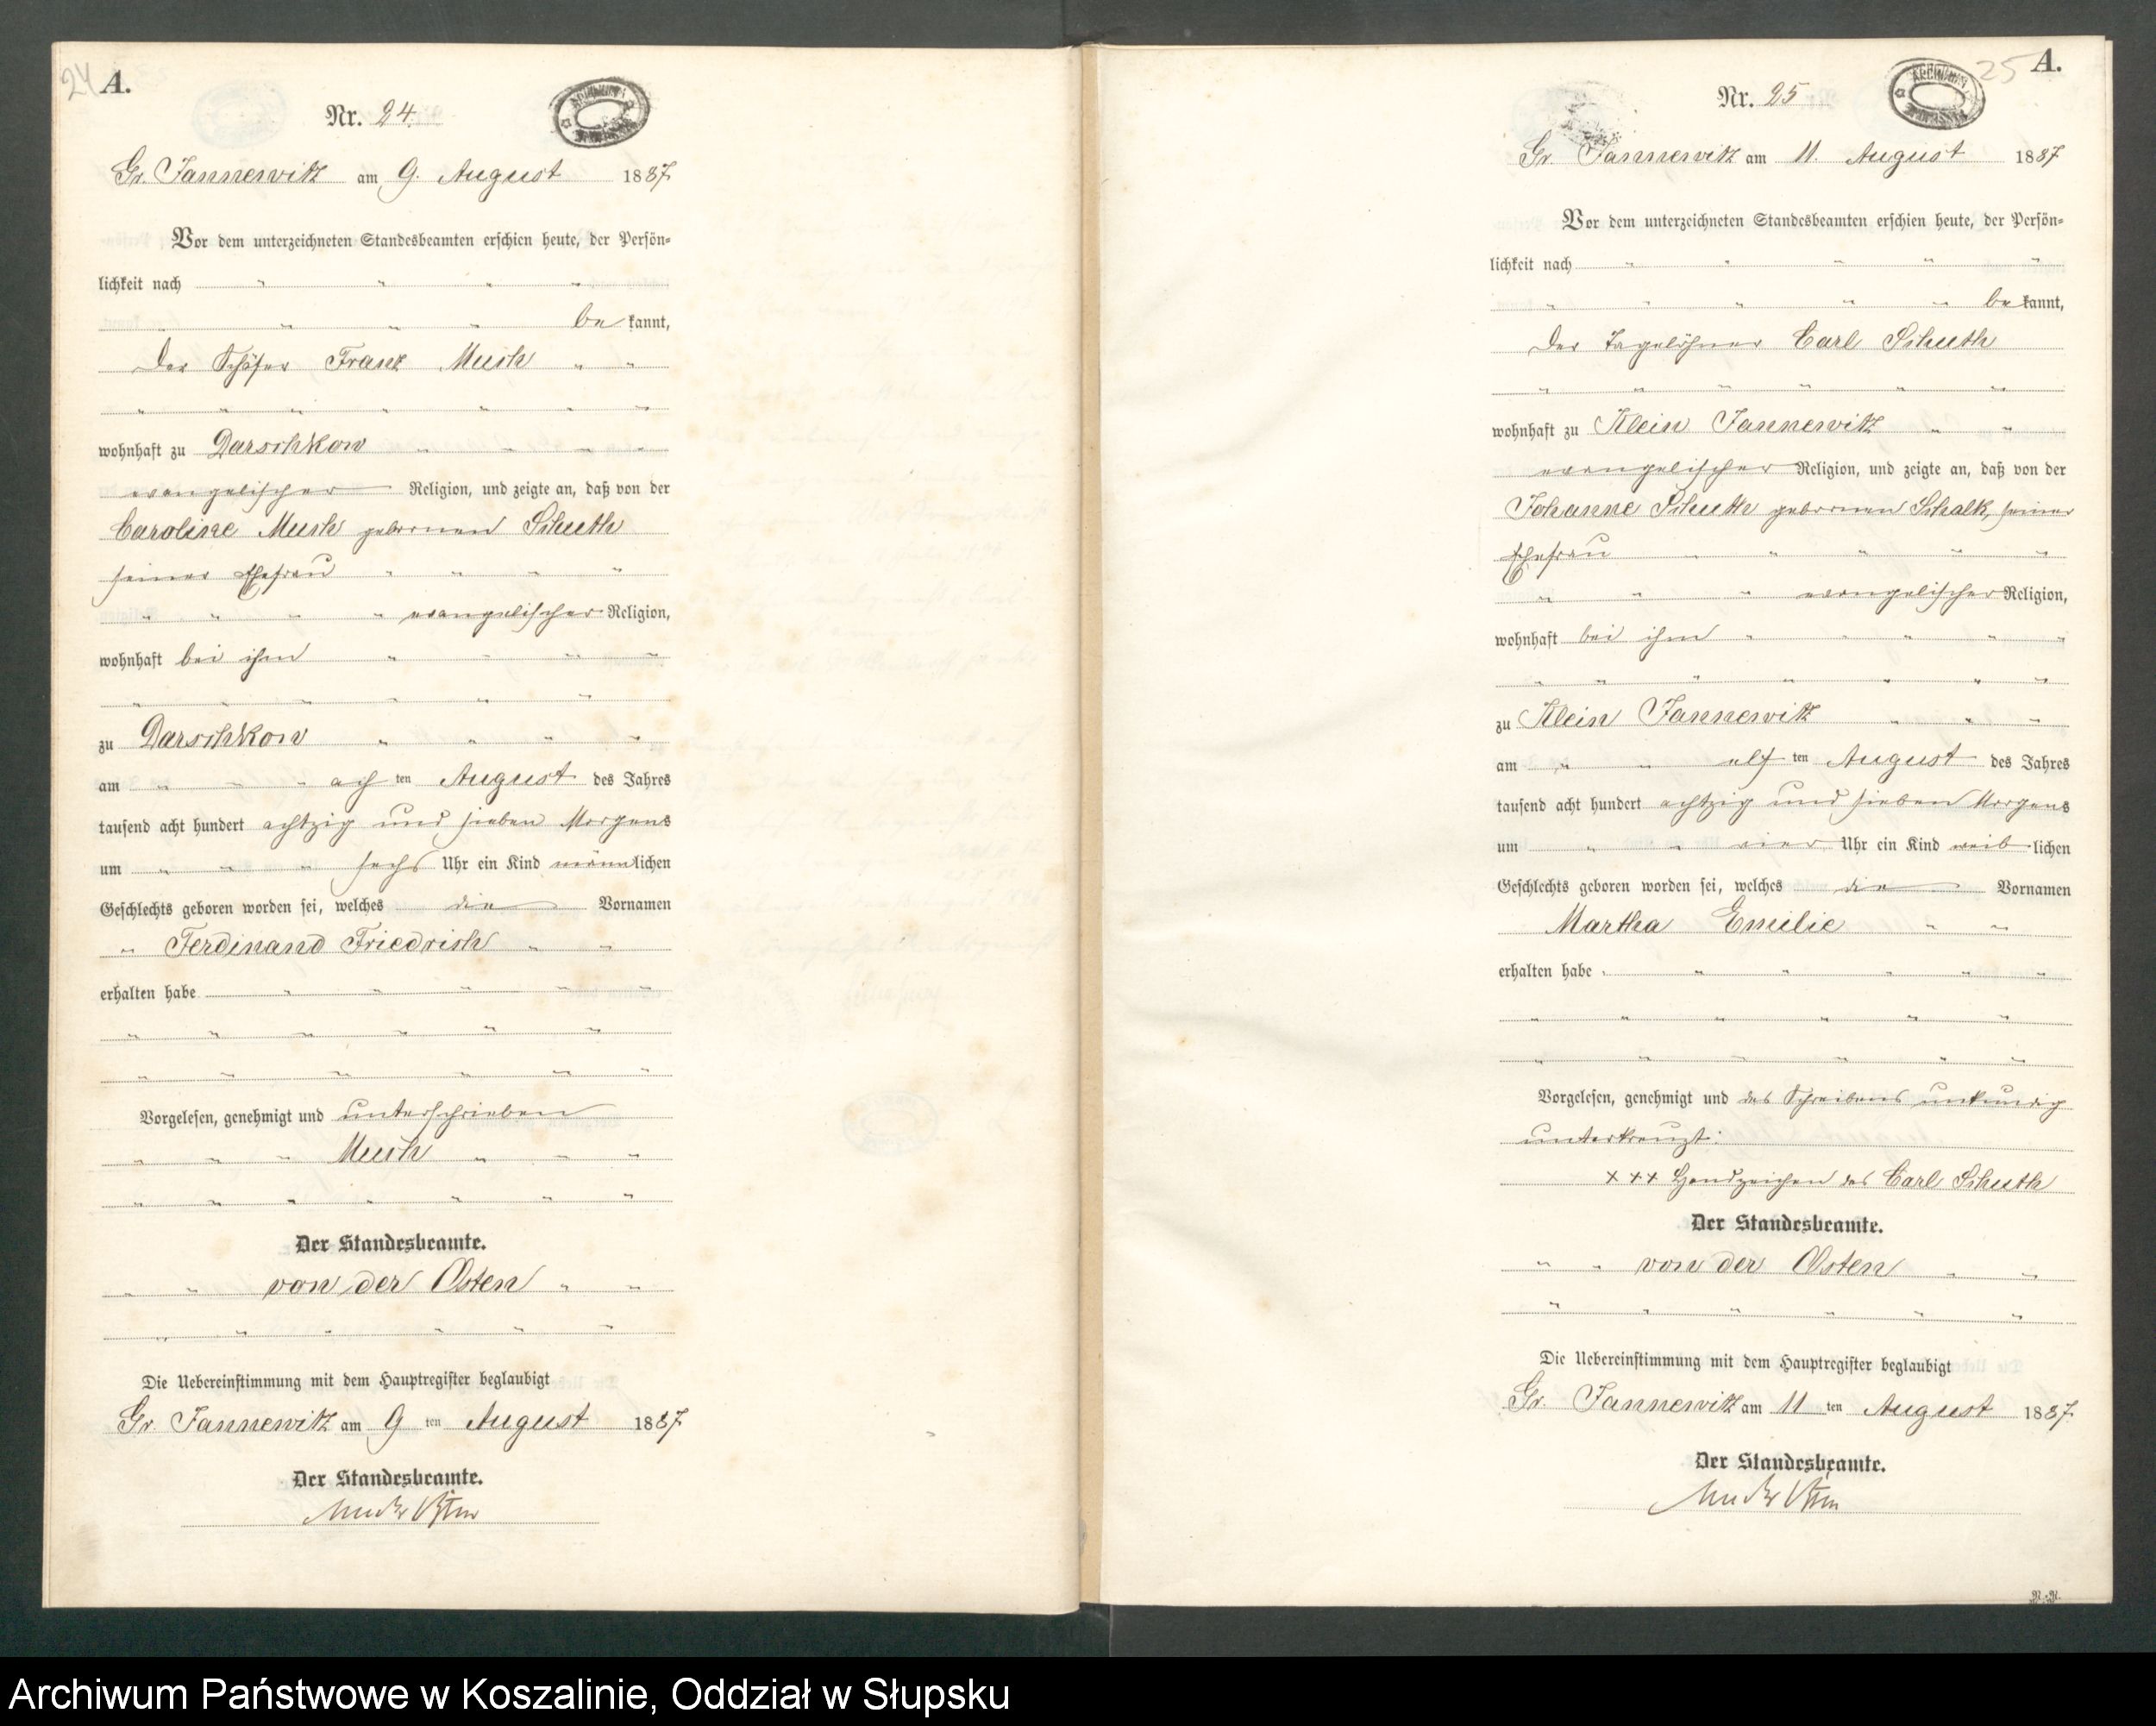 24 A.
Nr. 24.
Gr. Jannewitz am 9. August 1887
Vor dem unterzeichneten Standesbeamten erschien heute, der Persön-
lichkeit nach
be kannt,
der Schäfer Franz Mush
wohnhaft zu Darschkow
evangelischer Religion, und zeigte an, daß von der
Caroline Mush gebornen Schuth
seiner Ehefrau
evangelischer Religion,
wohnhaft bei ihm
zu Darschkow
am ach ten August des Jahres
tausend acht hundert achtzig und sieben Morgens
um sechs Uhr ein Kind männlichen
Geschlechts geboren worden sei, welches die Vornamen
Ferdinand Friedrich
erhalten habe
Vorgelesen, genehmigt und unterschrieben
Mush
Der Standesbeamte.
von der Osten
Die Uebereinstimmung mit dem Hauptregister beglaubigt
Gr. Jannewitz am 9 ten August 1887
Der Standesbeamte.
25 A.
Nr. 25
Gr. Jannewitz am 11. August 1887
Vor dem unterzeichneten Standesbeamten erschien heute, der Persön-
lichkeit nach
be kannt,
der Tagelöhner Carl Schuth
wohnhaft zu Klein Jannewitz
evangelischer Religion, und zeigte an, daß von der
Johanne Schuth gebornen Schalk, seiner
Ehefrau
evangelischer Religion,
wohnhaft bei ihm
zu Klein Jannewitz
am elf ten August des Jahres
tausend acht hundert achtzig und sieben Morgens
um vier Uhr ein Kind weib lichen
Geschlechts geboren worden sei, welches die Vornamen
Martha Emilie
erhalten habe
Vorgelesen, genehmigt und des Schreibens unkundig
unterkreuzt:
+++ Handzeichen des Carl Schuth
Der Standesbeamte.
von der Osten
Die Uebereinstimmung mit dem Hauptregister beglaubigt
Gr. Jannewitz am 11 ten August 1887
Der Standesbeamte.
Archiwum Państwowe w Koszalinie, Oddział w Słupsku